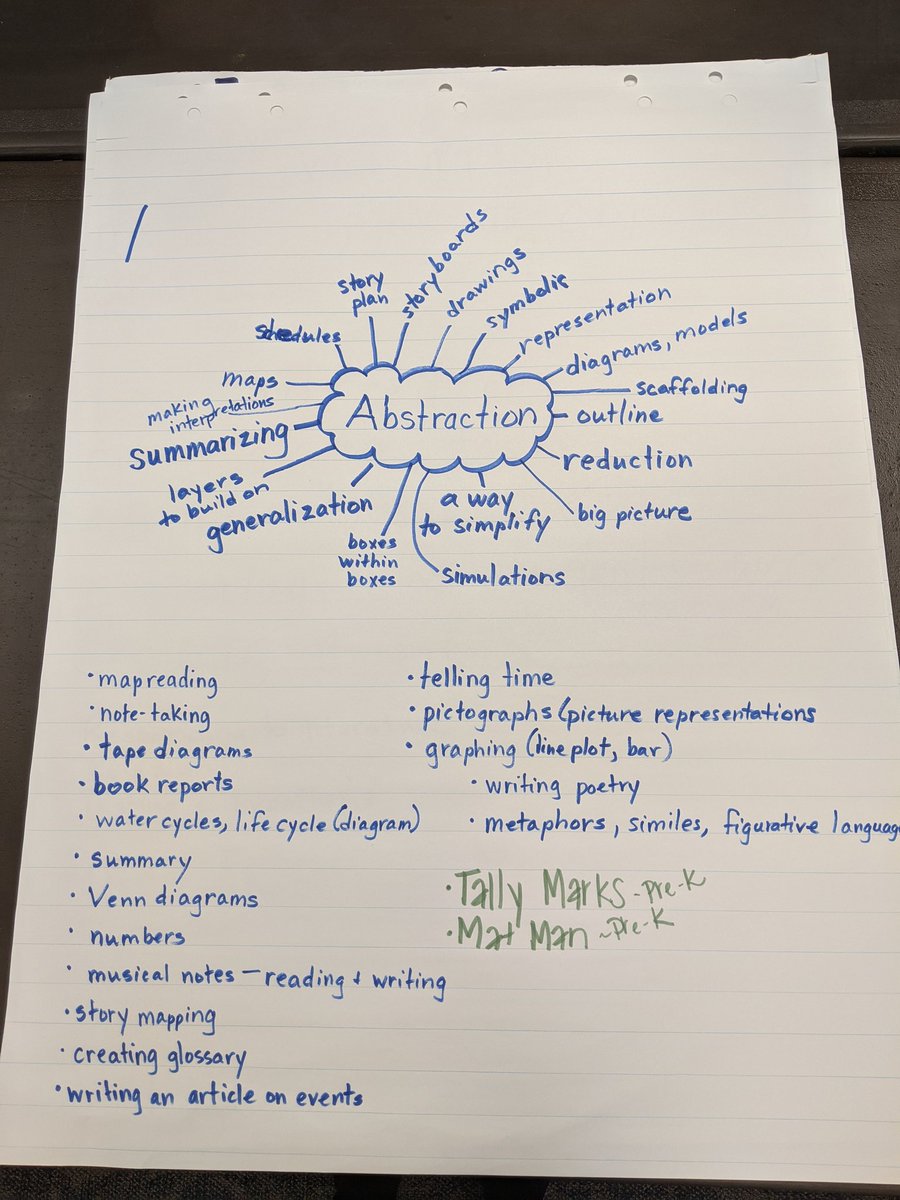 story
plan
storyboards
drawings
symbolic
schedules
representation
diagrams, models
maps
scaffolding
making
interpretations
Abstraction
outline
summarizing
reduction
layers
to build on
generalization
a way
to simplify
big picture
boxes
within
boxes
simulations
• map reading
• note-taking
• tape diagrams
• book reports
• water cycles, life cycle (diagram)
• summary
• Venn diagrams
• numbers
• musical notes — reading + writing
• story mapping
• creating glossary
• writing an article on events
• telling time
• pictographs (picture representations
• graphing (line plot, bar)
• writing poetry
• metaphors, similes, figurative language
• Tally Marks - Pre-K
• Mat Man ~ Pre-K